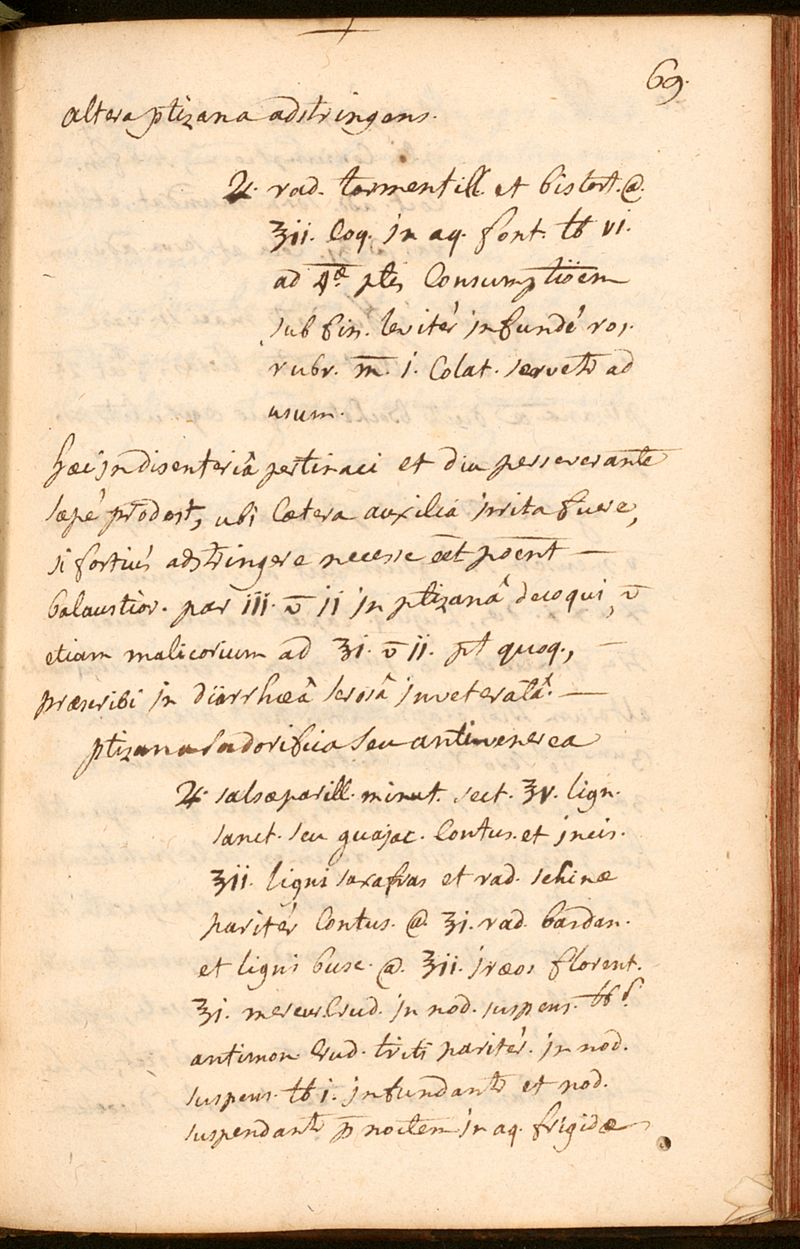 69.
altera ptizana adstringens.
♃. rad. tormentill. et bistort. @.
ʒii. Coq. in aq. font. ℔ vi.
ad 4ᵃ ptis Consumptiōem
sub fin. levitér infundé ros.
rubr. m̄. i. Colat. servetr ad
usum.
hæc in disenteriâ pertinaci et diu perseverante
sæpé prodest, ubi Cætera auxilia irrita fuere,
si fortiús adstringere necesse eēt poēnt —
balaustior. par iii. v̄ ii in ptizanâ decoqui, v̄
etiam malicorium ad ʒi. v̄ ii. pt quoq., —
præscribi in diarrhœâ serosâ inveteratâ. —
ptizana sudorificia seu antivenerea
♃. salsæparill. minut. sect. ʒv. lign.
sanct. seu guajac. Contus. et incis.
ʒii. ligni saxafras et rad. schinæ
paritér Contus. @. ʒi. rad. bardan.
et ligni busc. @. ʒii. iræos florent.
ʒi. mercur. Crud. in nod. suspens. ℔ ſ.
antimon. Crud. triti paritér. in nod.
suspens. ℔ i. infundantr et nod.
suspendantr p̄ noctem in aq. frigidæ